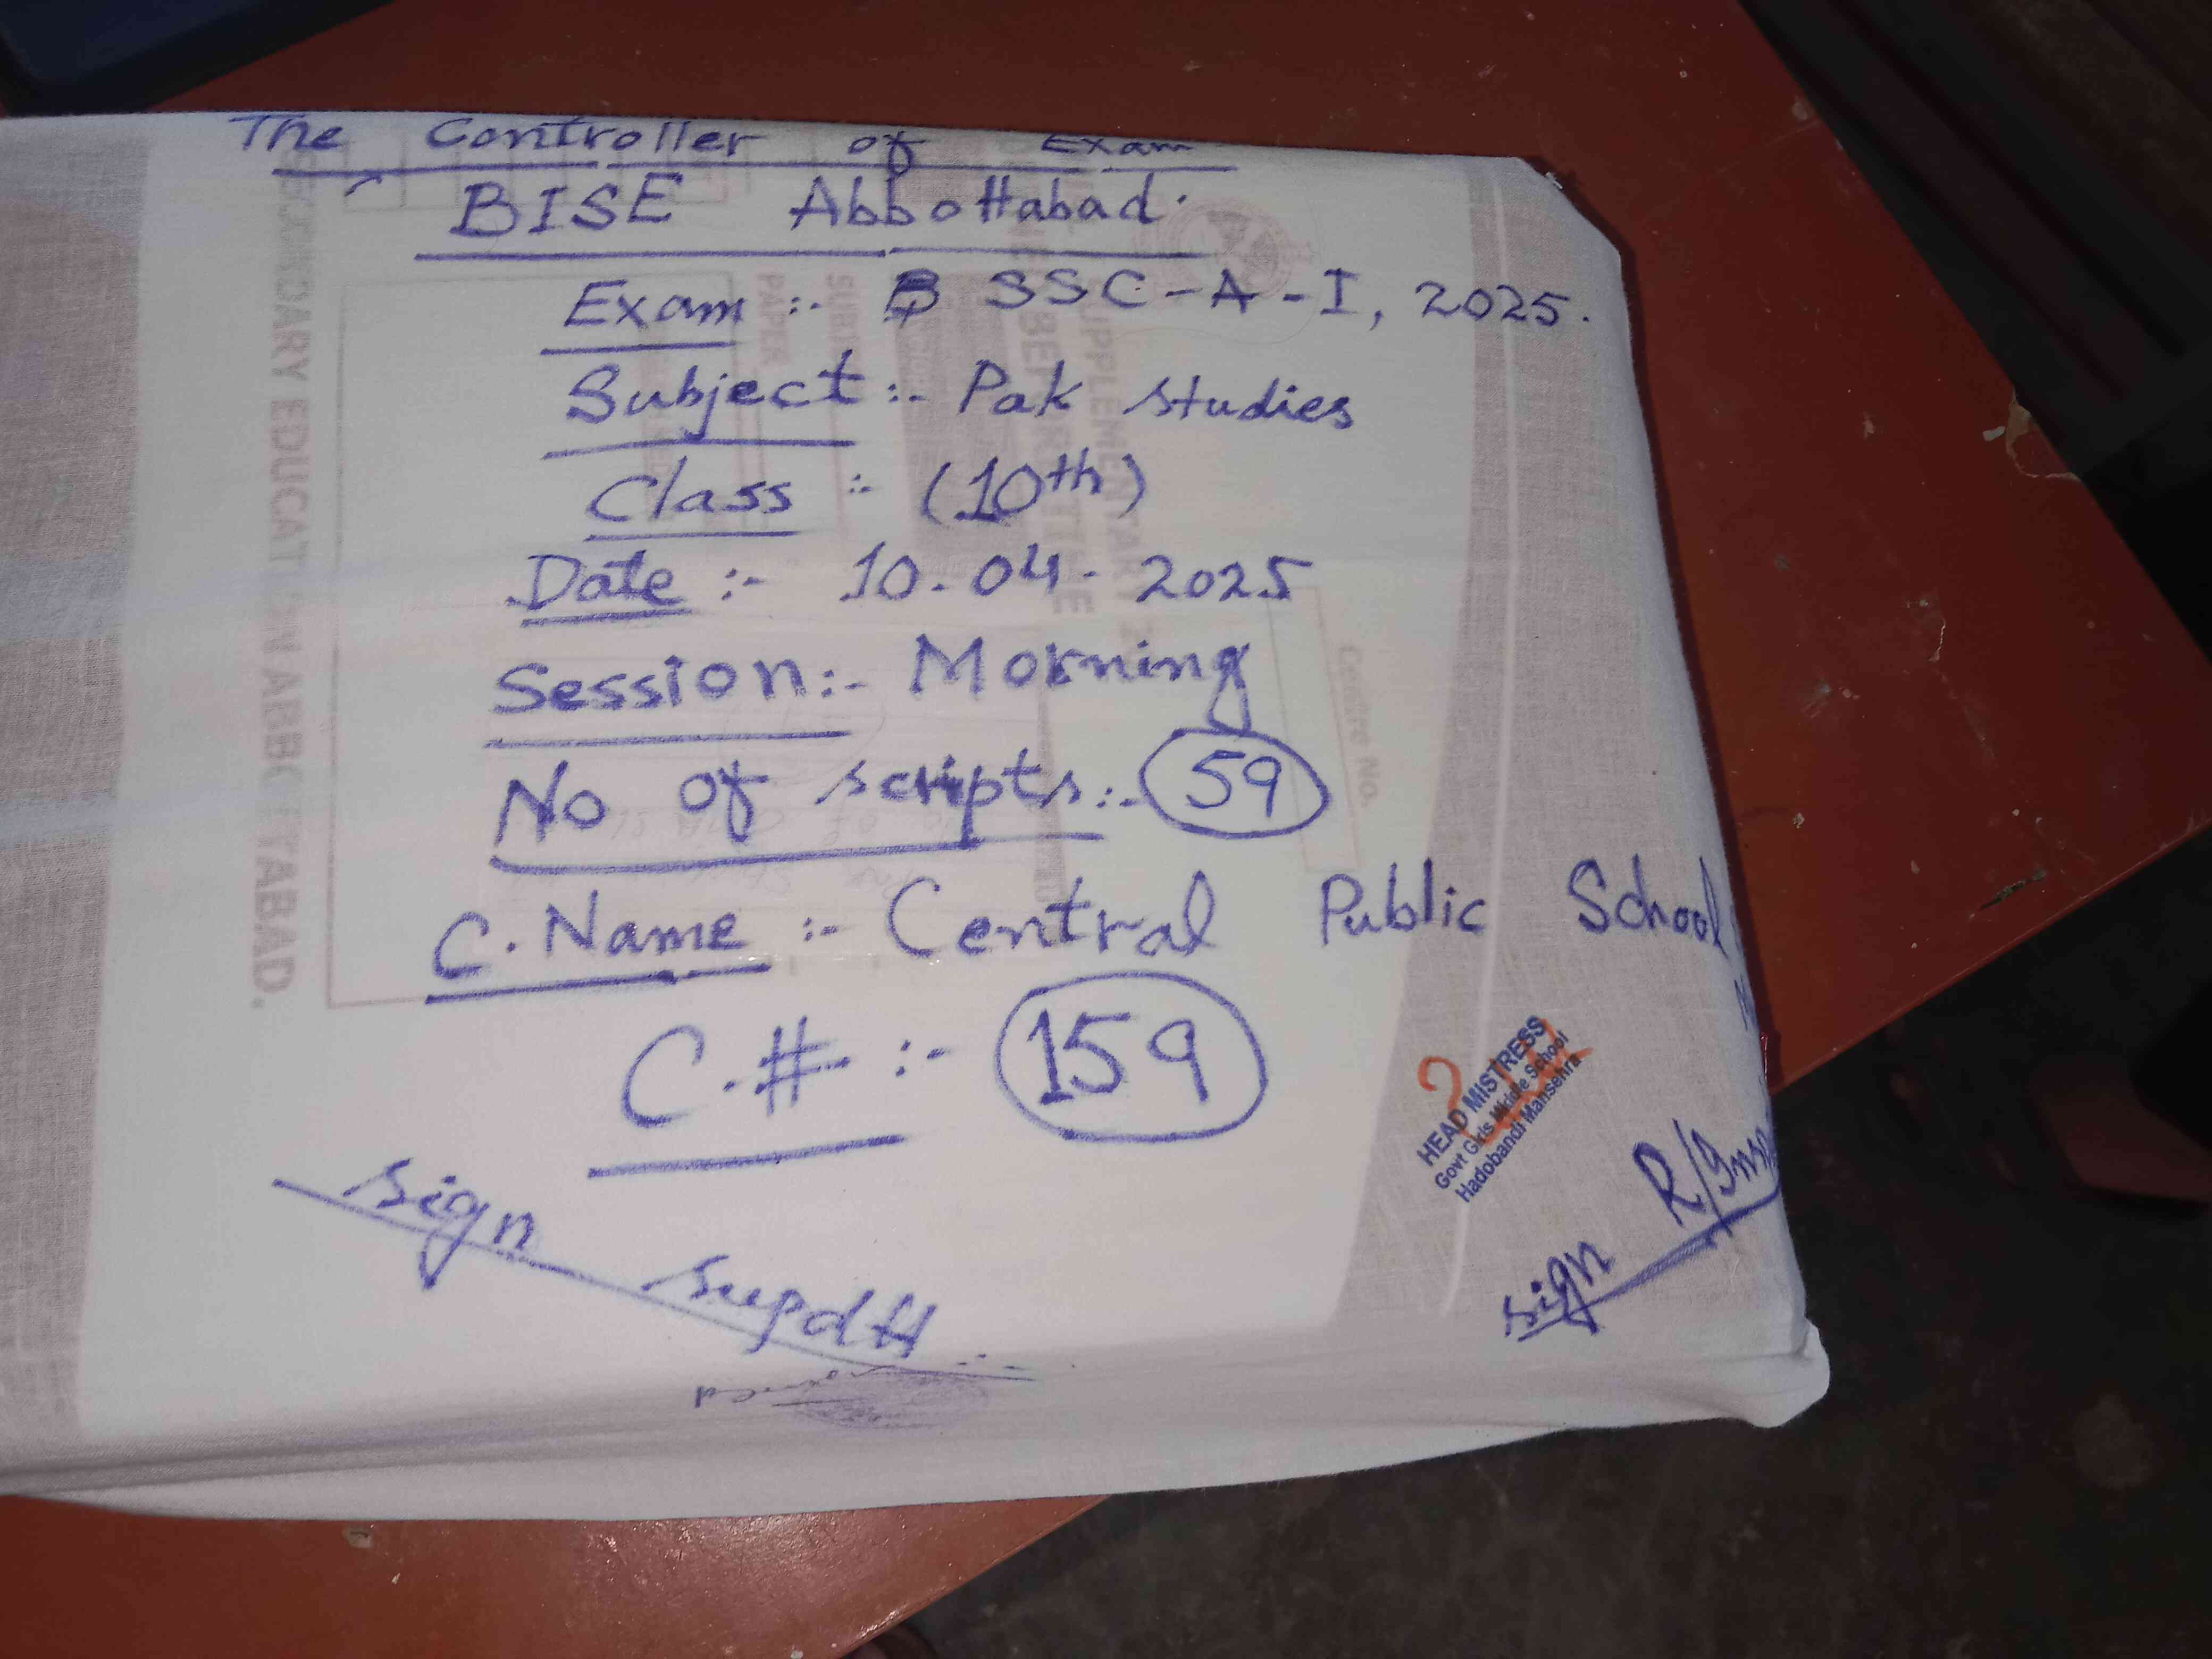 The Controller of Exam
BISE Abbottabad.
Exam :- B SSC-A-I, 2025.
Subject :- Pak studies
Class :- (10th)
Date :- 10-04-2025
Session :- Morning
No of scripts :- 59
C. Name :- Central Public School
C.# :- 159
24
HEAD MISTRESS
Govt Girls Middle School
Hadobandi Mansehra
sign supdtt
sign R/Insp
SECONDARY EDUCATION ABBOTTABAD.
PAPER
SUBJ
SUPPLEMENTARY
Centre No.